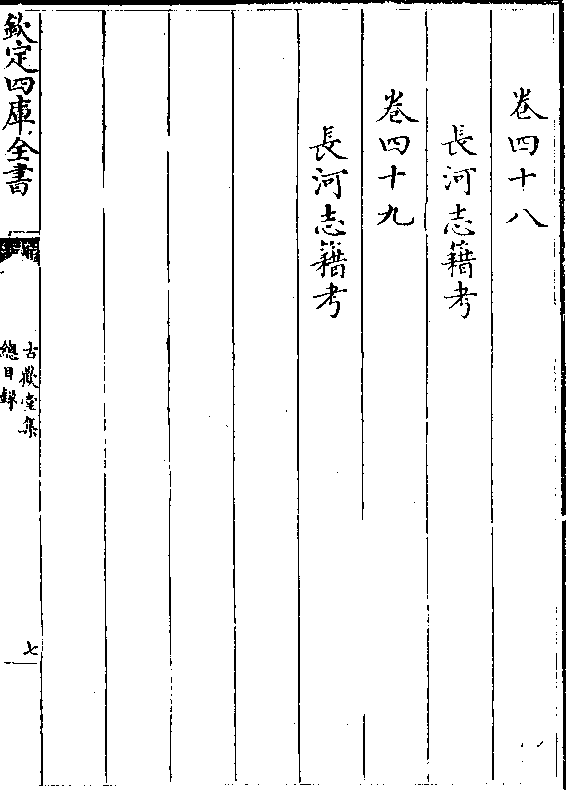 卷四十八
長河志籍考
卷四十九
長河志籍考
欽定四庫全書
古歡堂集
總目錄
七